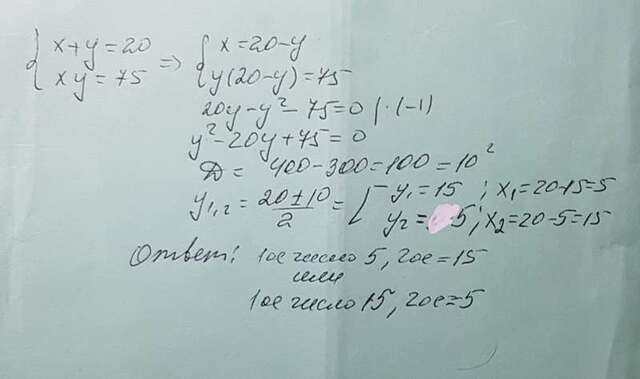 { x+y=20 => { x=20-y
{ xy=75 { y(20-y)=75
20y-y²-75=0 | ·(-1)
y²-20y+75=0
D= 400-300=100=10²
y₁,₂ = (20±10)/2 = [ y₁=15 ; x₁=20-15=5
y₂=5 ; x₂=20-5=15
Ответ: 1ое число 5, 2ое=15
или
1ое число 15, 2ое=5